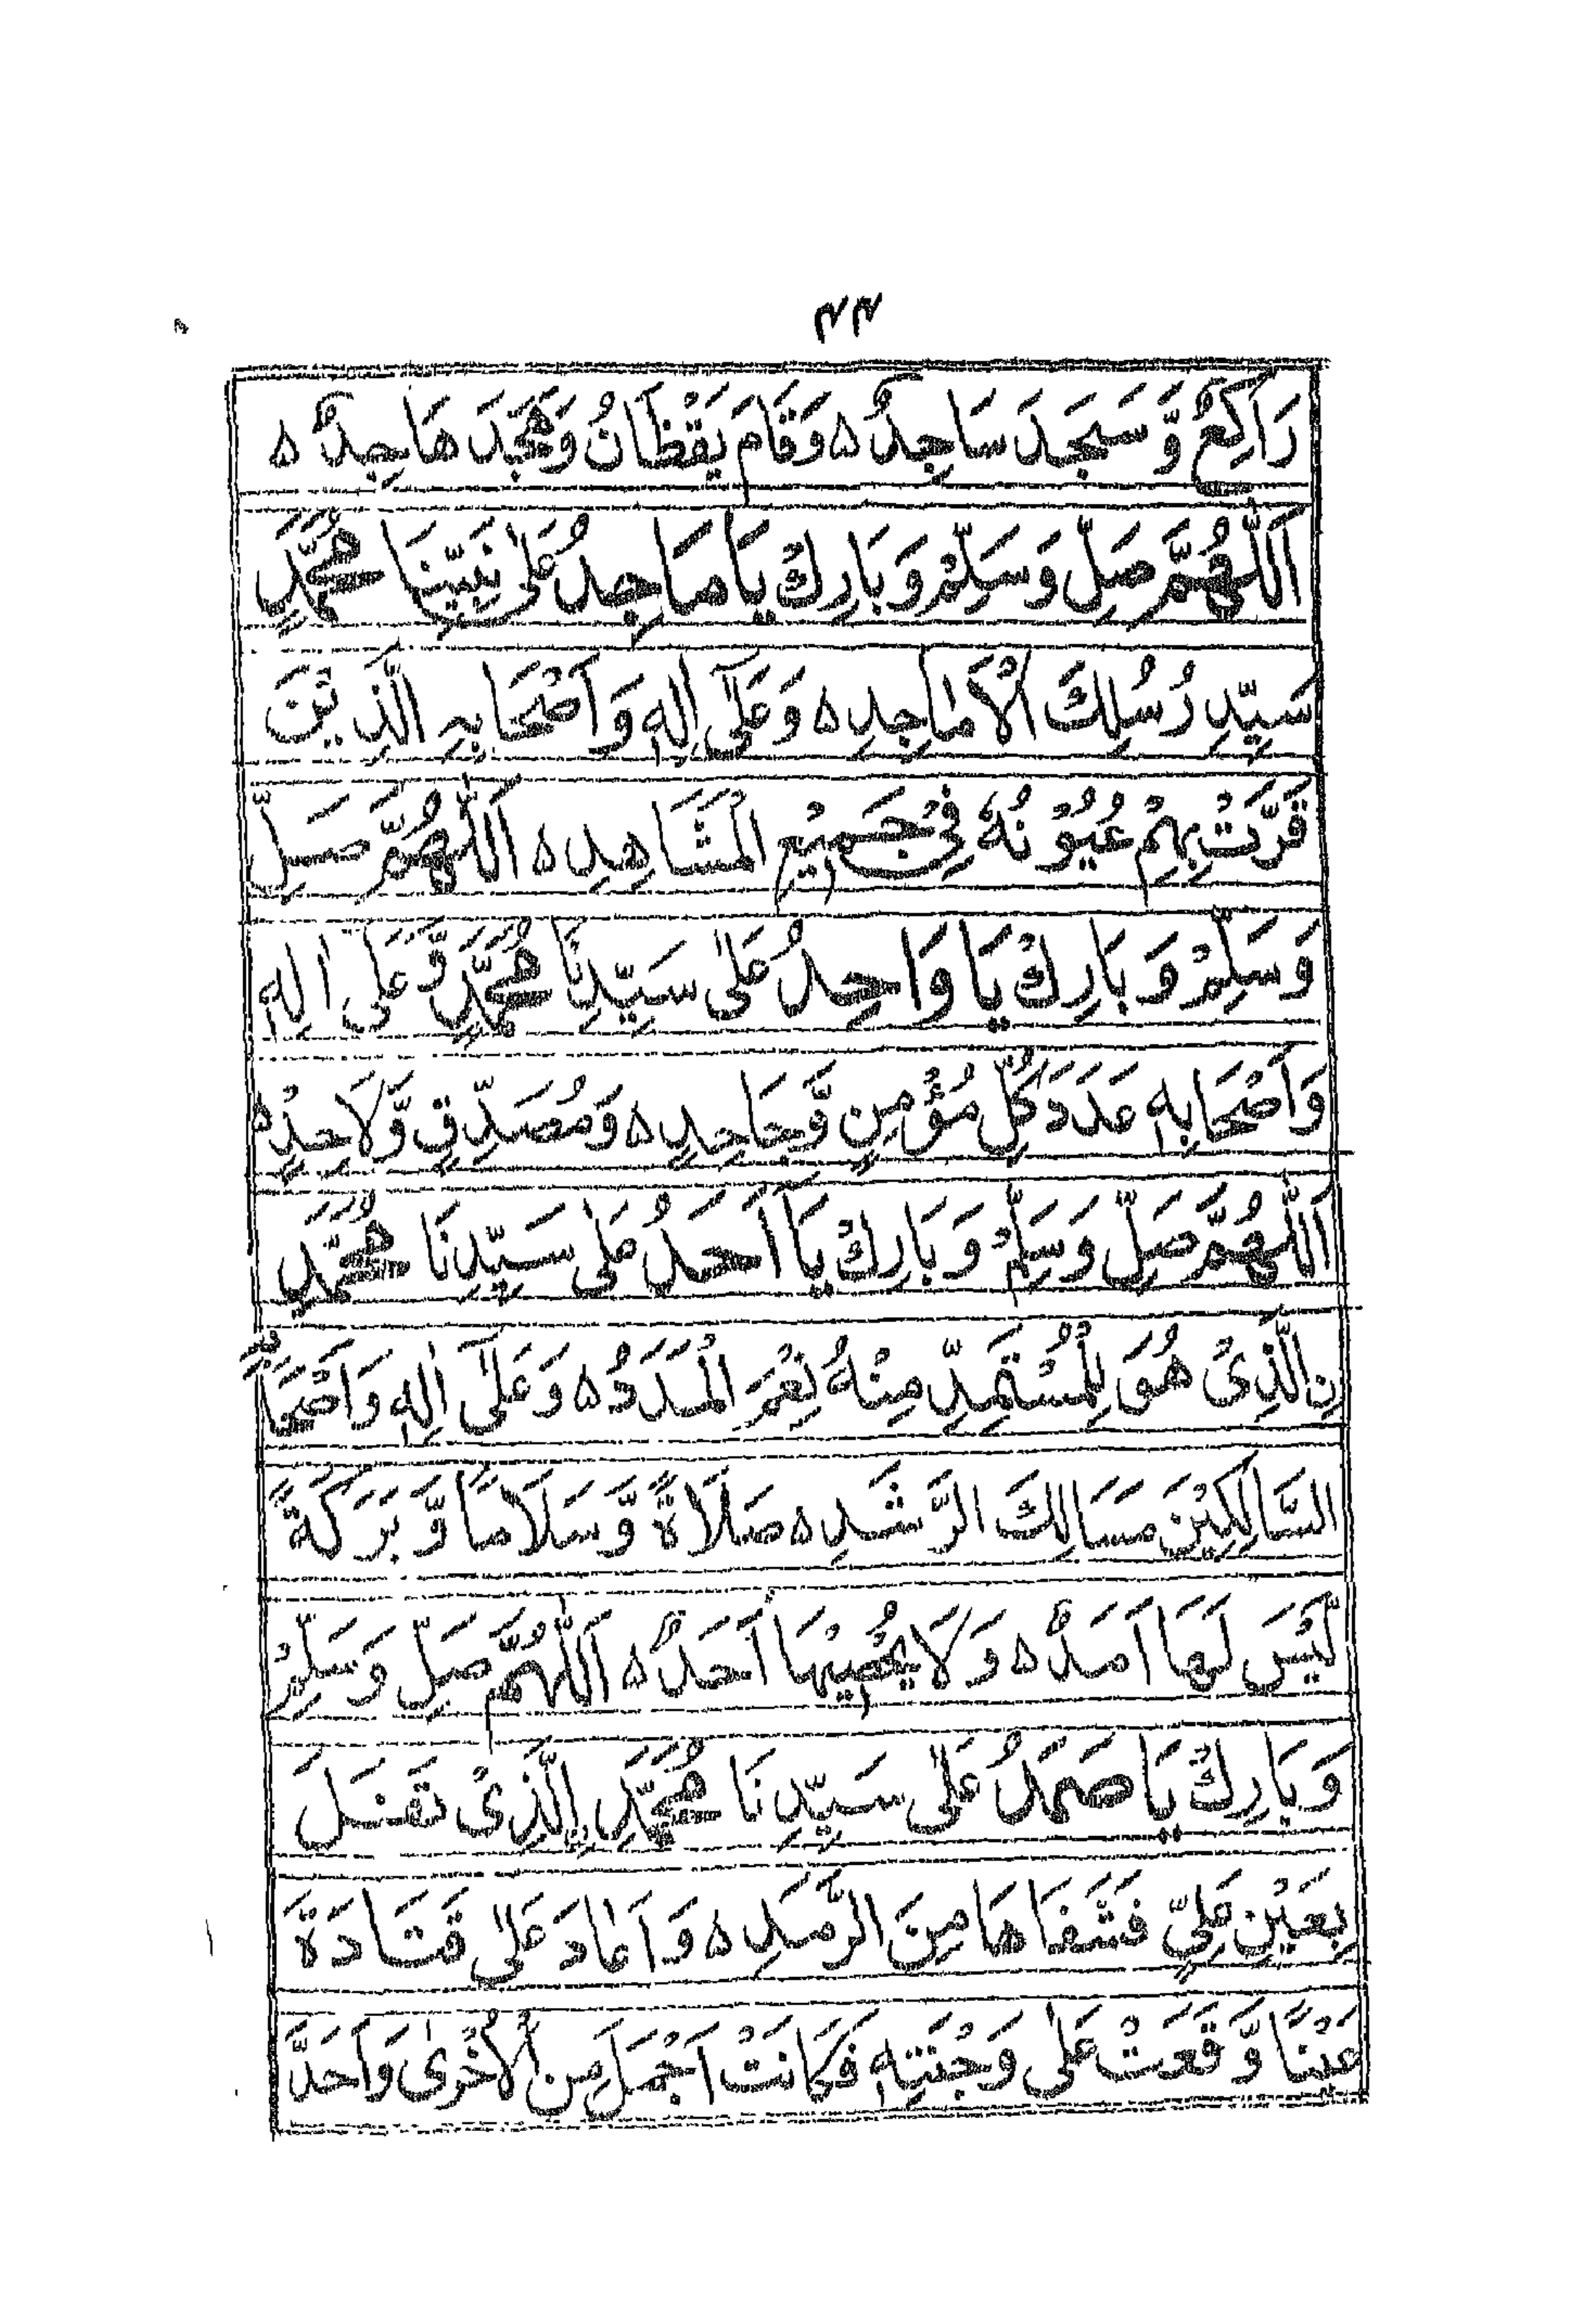 ۴۴
رَاكِعٌ وَّسَجَدَ سَاجِدٌ ۵ وَقَامَ يَقْظَانُ وَهَجَدَ هَاجِدٌ ۵
اَللّٰهُمَّ صَلِّ وَسَلِّمْ وَبَارِكْ يَا مَاجِدُ عَلٰى نَبِيِّنَا مُحَمَّدٍ
سَيِّدِ رُسُلِكَ الْاَمَاجِدِ ۵ وَعَلٰٓى اٰلِهٖ وَاَصْحَابِهِ الَّذِيْنَ
قَرَّتْ بِهِمْ عُيُوْنُهٗ فِيْ جَمِيْعِ الْمَشَاهِدِ ۵ اَللّٰهُمَّ صَلِّ
وَسَلِّمْ وَبَارِكْ يَا وَاحِدُ عَلٰى سَيِّدِنَا مُحَمَّدٍ وَّعَلٰى اٰلِهٖ
وَاَصْحَابِهٖ عَدَدَ كُلِّ مُؤْمِنٍ وَّجَاحِدٍ ۵ وَمُصَدِّقٍ وَّلَاحِدٍ ۵
اَللّٰهُمَّ صَلِّ وَسَلِّمْ وَبَارِكْ يَا اَحَدُ عَلٰى سَيِّدِنَا مُحَمَّدِ
نِ الَّذِيْ هُوَ لِلْمُسْتَمِدِّ مِنْهُ نِعْمَ الْمَدَدُ ۵ وَعَلٰٓى اٰلِهٖ وَاَصْحَابِهِ
السَّالِكِيْنَ مَسَالِكَ الرَّشَدِ ۵ صَلَاةً وَّسَلَامًا وَّبَرَكَةً
لَّيْسَ لَهَا اَمَدٌ ۵ وَلَا يُحْصِيْهَا اَحَدٌ ۵ اَللّٰهُمَّ صَلِّ وَسَلِّمْ
وَبَارِكْ يَا صَمَدُ عَلٰى سَيِّدِنَا مُحَمَّدِ نِ الَّذِيْ تَفَلَ
بِعَيْنِ عَلِيٍّ فَشَفَاهَا مِنَ الرَّمَدِ ۵ وَاَعَادَ عَلٰى قَتَادَةَ
عَيْنًا وَّقَعَتْ عَلٰى وَجْنَتِهٖ فَكَانَتْ اَجْمَلَ مِنَ الْاُخْرٰى وَاَحَدَّ